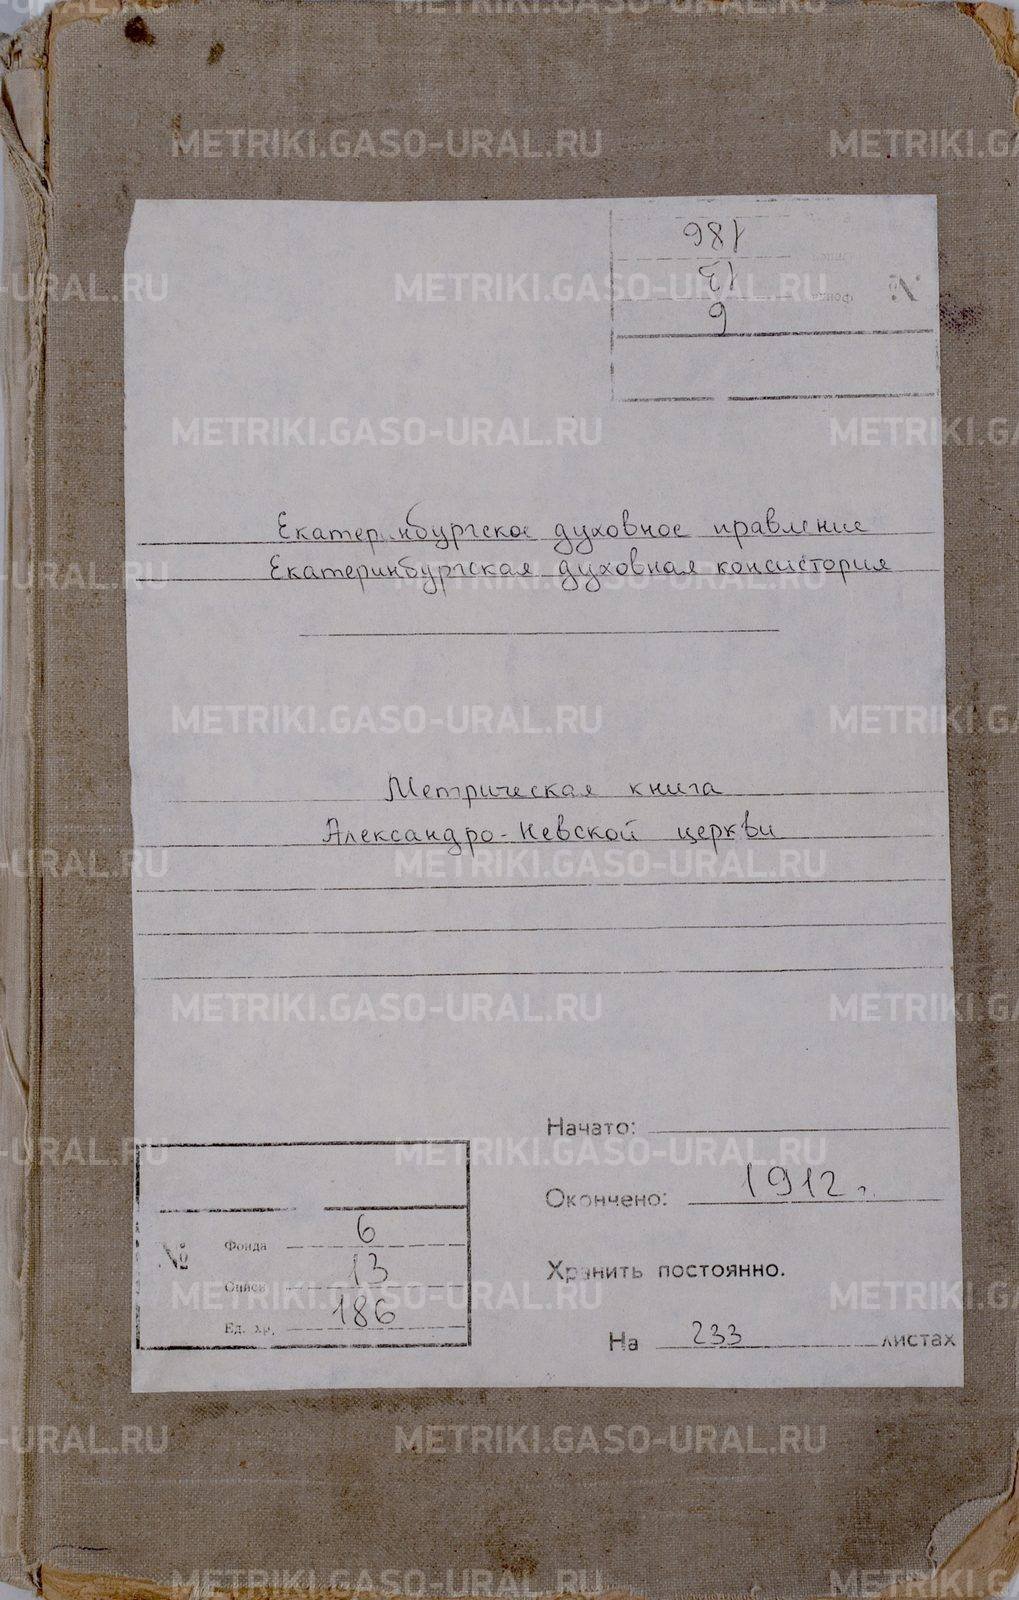 186
13
Фонда
№
6
Екатеринбургское духовное правление
Екатеринбургская духовная консистория
Метрическая книга
Александро-Невской церкви
Начато:
Окончено: 1912 г.
Хранить постоянно.
На 233 листах
№
Фонда 6
Описи 13
Ед. хр. 186
METRIKI.GASO-URAL.RU